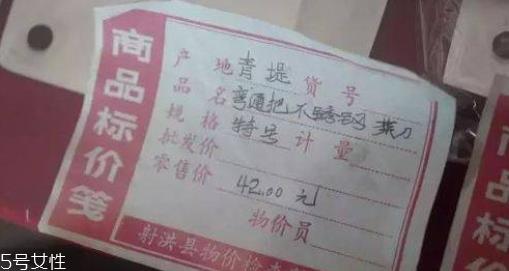 商品标价笺
产地 青堤 货号
品名 弯通把不锈钢菜刀
规格 特号 计量
批发价
零售价 42.00元
物价员
射洪县物价检
5号女性